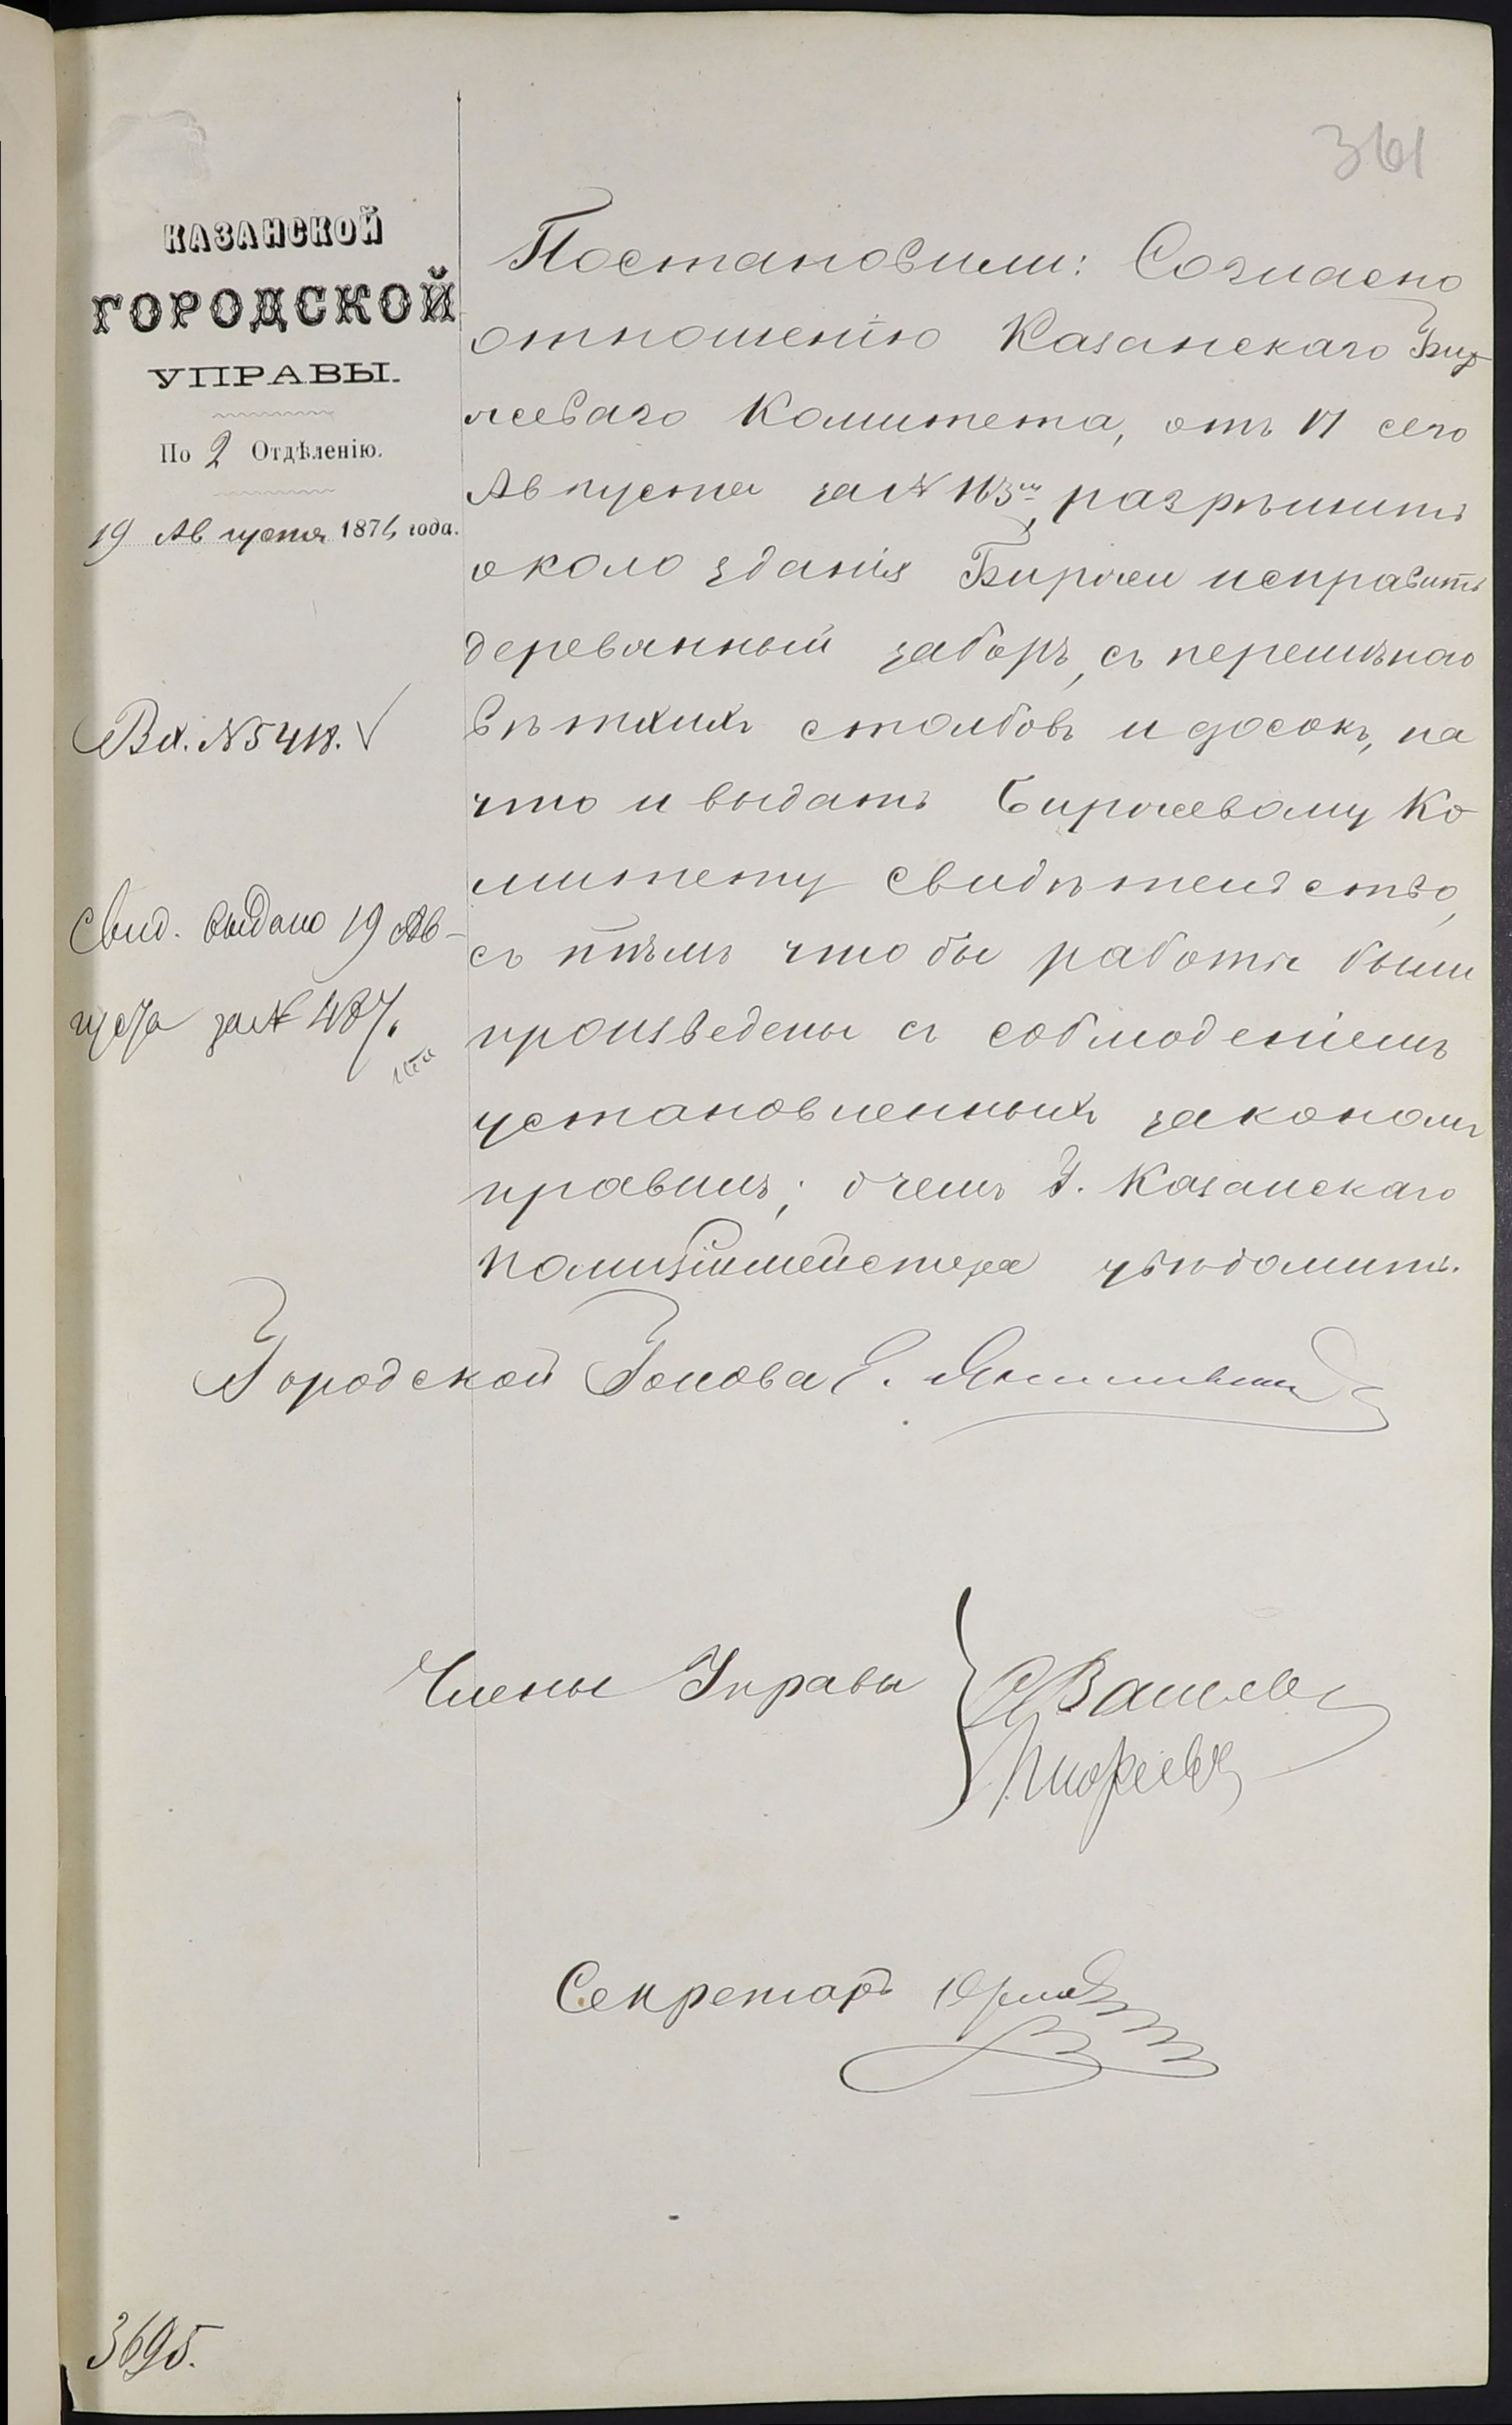 361
КАЗАНСКОЙ
ГОРОДСКОЙ
УПРАВЫ.
По 2 Отдѣленію.
19 Августа 1876 года.
Вх. № 5418.
Свид. выдано 19 Ав-
густа за № 487.
Постановили: Согласно
отношенію Казанскаго Бир
жеваго Комитета, отъ 17 сего
Августа за № 163мъ, разрѣшить
около зданія Биржи исправить
деревянный заборъ, съ перемѣною
вѣтхихъ столбовъ и досокъ, на
что и выдать Биржевому Ко
митету свидѣтельство,
съ тѣмъ что бы работы были
произведены съ соблюденіемъ
установленныхъ закономъ
правилъ; о чемъ Г. Казанскаго
полиціймейстера увѣдомить.
Городской Голова
Члены Управы
Секретарь
3695.